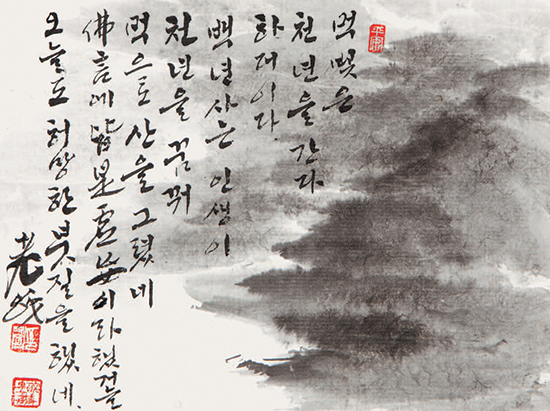 먹빛은
천년을 간다
하더이다.
백년 사는 인생이
천년을 꿈꿔
먹으로 산을 그렸네
佛言에 皆是虛妄이라 했거늘
오늘도 허망한 붓질을 했네.
老